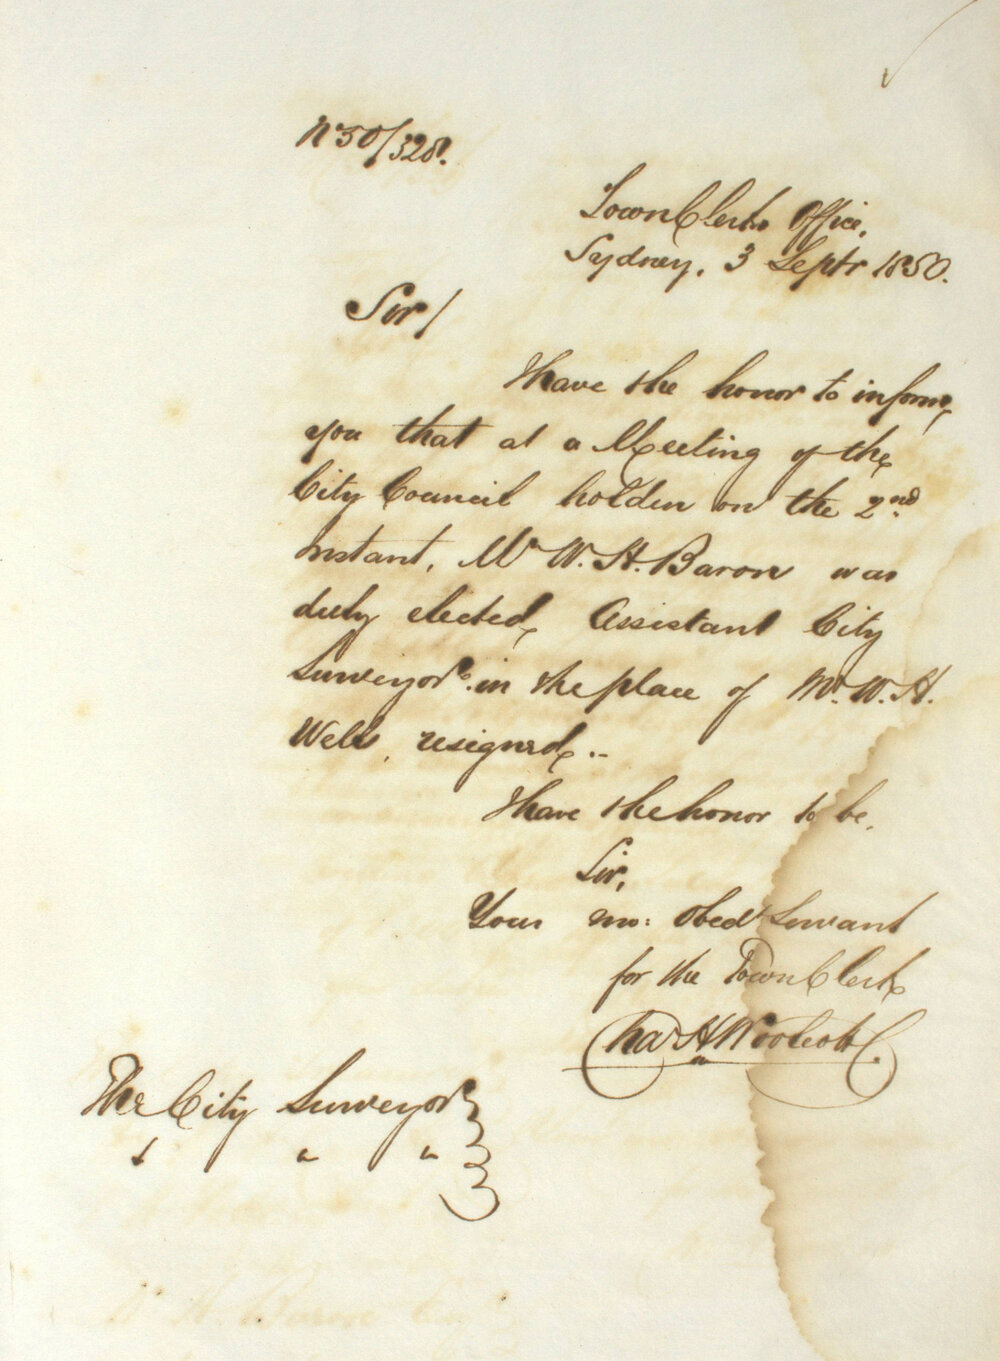 No 50/328.
Town Clerks Office,
Sydney, 3 Septr 1850.
Sir/
I have the honor to inform
you that at a Meeting of the
City Council holden on the 2nd
Instant, Mr W. H. Baron was
duly elected Assistant City
Surveyor. in the place of Mr. W. H.
Wells, resigned..
I have the honor to be.
Sir,
Your mo: Obedt Servant
for the Town Clerk
Chas H Woolcott.
The City Surveyor